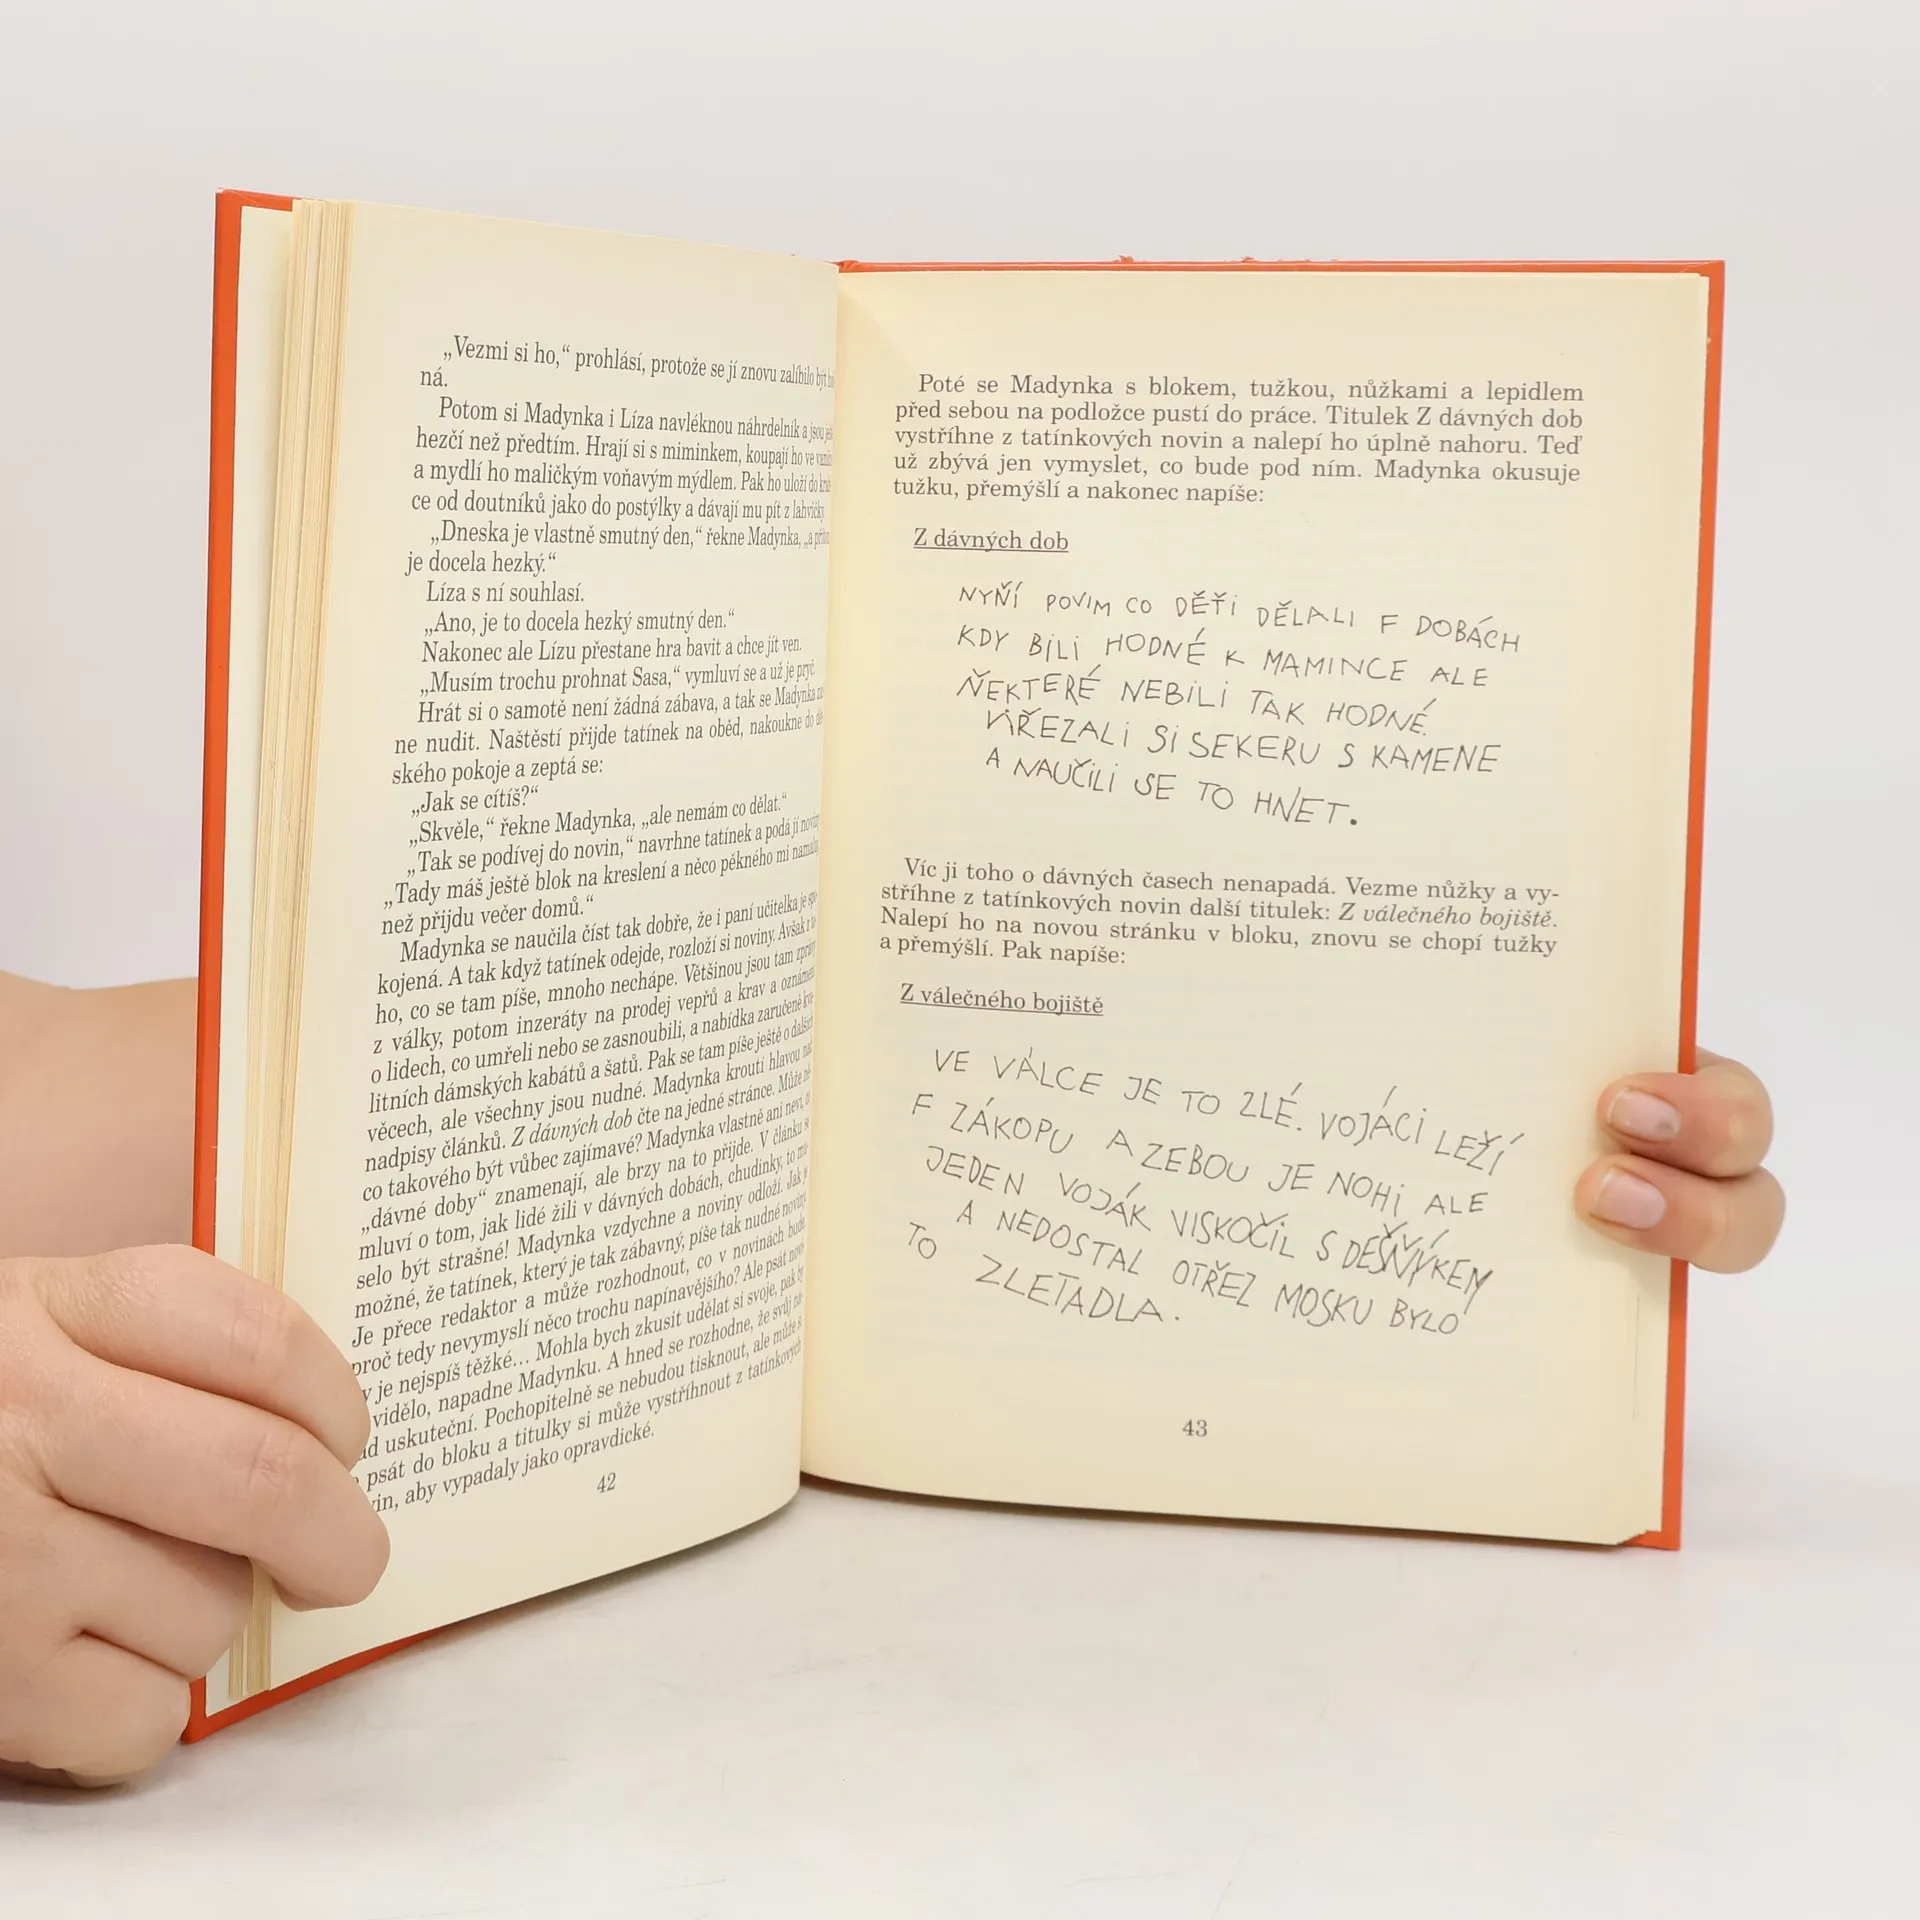 „Vezmi si ho,“ prohlásí, protože se jí znovu zalíbilo být
ná.
Potom si Madynka i Líza navléknou náhrdelník a jsou
hezčí než předtím. Hrají si s miminkem, koupají ho ve
a mydlí ho maličkým voňavým mýdlem. Pak ho uloží do
ce od doutníků jako do postýlky a dávají mu pít z lahvičky
„Dneska je vlastně smutný den,“ řekne Madynka, „a
je docela hezký.“
Líza s ní souhlasí.
„Ano, je to docela hezký smutný den.“
Nakonec ale Lízu přestane hra bavit a chce jít ven.
„Musím trochu prohnat Sasa,“ vymluví se a už je pryč.
Hrát si o samotě není žádná zábava, a tak se Madynka
ne nudit. Naštěstí přijde tatínek na oběd, nakoukne do
ského pokoje a zeptá se:
„Jak se cítíš?“
„Skvěle,“ řekne Madynka, „ale nemám co dělat.“
„Tak se podívej do novin,“ navrhne tatínek a podá jí
„Tady máš ještě blok na kreslení a něco pěkného mi
než přijdu večer domů.“
Madynka se naučila číst tak dobře, že i paní učitelka je
kojená. A tak když tatínek odejde, rozloží si noviny. Avšak z
ho, co se tam píše, mnoho nechápe. Většinou jsou tam zprávy
z války, potom inzeráty na prodej vepřů a krav a
o lidech, co umřeli nebo se zasnoubili, a nabídka zaručeně
litních dámských kabátů a šatů. Pak se tam píše ještě o dalších
věcech, ale všechny jsou nudné. Madynka kroutí hlavou nad
nadpisy článků. Z dávných dob čte na jedné stránce. Může
co takového být vůbec zajímavé? Madynka vlastně ani neví,
„dávné doby“ znamenají, ale brzy na to přijde. V článku
mluví o tom, jak lidé žili v dávných dobách, chudinky, to
selo být strašné! Madynka vzdychne a noviny odloží. Jak
možné, že tatínek, který je tak zábavný, píše tak nudné noviny
Je přece redaktor a může rozhodnout, co v novinách bude,
proč tedy nevymyslí něco trochu napínavějšího? Ale psát
je nejspíš těžké... Mohla bych zkusit udělat si svoje, pak by
vidělo, napadne Madynku. A hned se rozhodne, že svůj
uskuteční. Pochopitelně se nebudou tisknout, ale může
psát do bloku a titulky si může vystříhnout z tatínkových
aby vypadaly jako opravdické.
42
Poté se Madynka s blokem, tužkou, nůžkami a lepidlem
před sebou na podložce pustí do práce. Titulek Z dávných dob
vystříhne z tatínkových novin a nalepí ho úplně nahoru. Teď
už zbývá jen vymyslet, co bude pod ním. Madynka okusuje
tužku, přemýšlí a nakonec napíše:
Z dávných dob
NYŇÍ POVIM CO DĚŤI DĚLALI F DOBÁCH
KDY BILI HODNÉ K MAMINCE ALE
ŇEKTERÉ NEBILI TAK HODNÉ.
VIŘEZALI SI SEKERU S KAMENE
A NAUČILI SE TO HNET.
Víc ji toho o dávných časech nenapadá. Vezme nůžky a vy-
stříhne z tatínkových novin další titulek: Z válečného bojiště.
Nalepí ho na novou stránku v bloku, znovu se chopí tužky
a přemýšlí. Pak napíše:
Z válečného bojiště
VE VÁLCE JE TO ZLÉ. VOJÁCI LEŽÍ
F ZÁKOPU A ZEBOU JE NOHI ALE
JEDEN VOJÁK VISKOČIL S DEŠŇÝKEM
A NEDOSTAL OTŘEZ MOSKU BYLO
TO ZLEŤADLA.
43